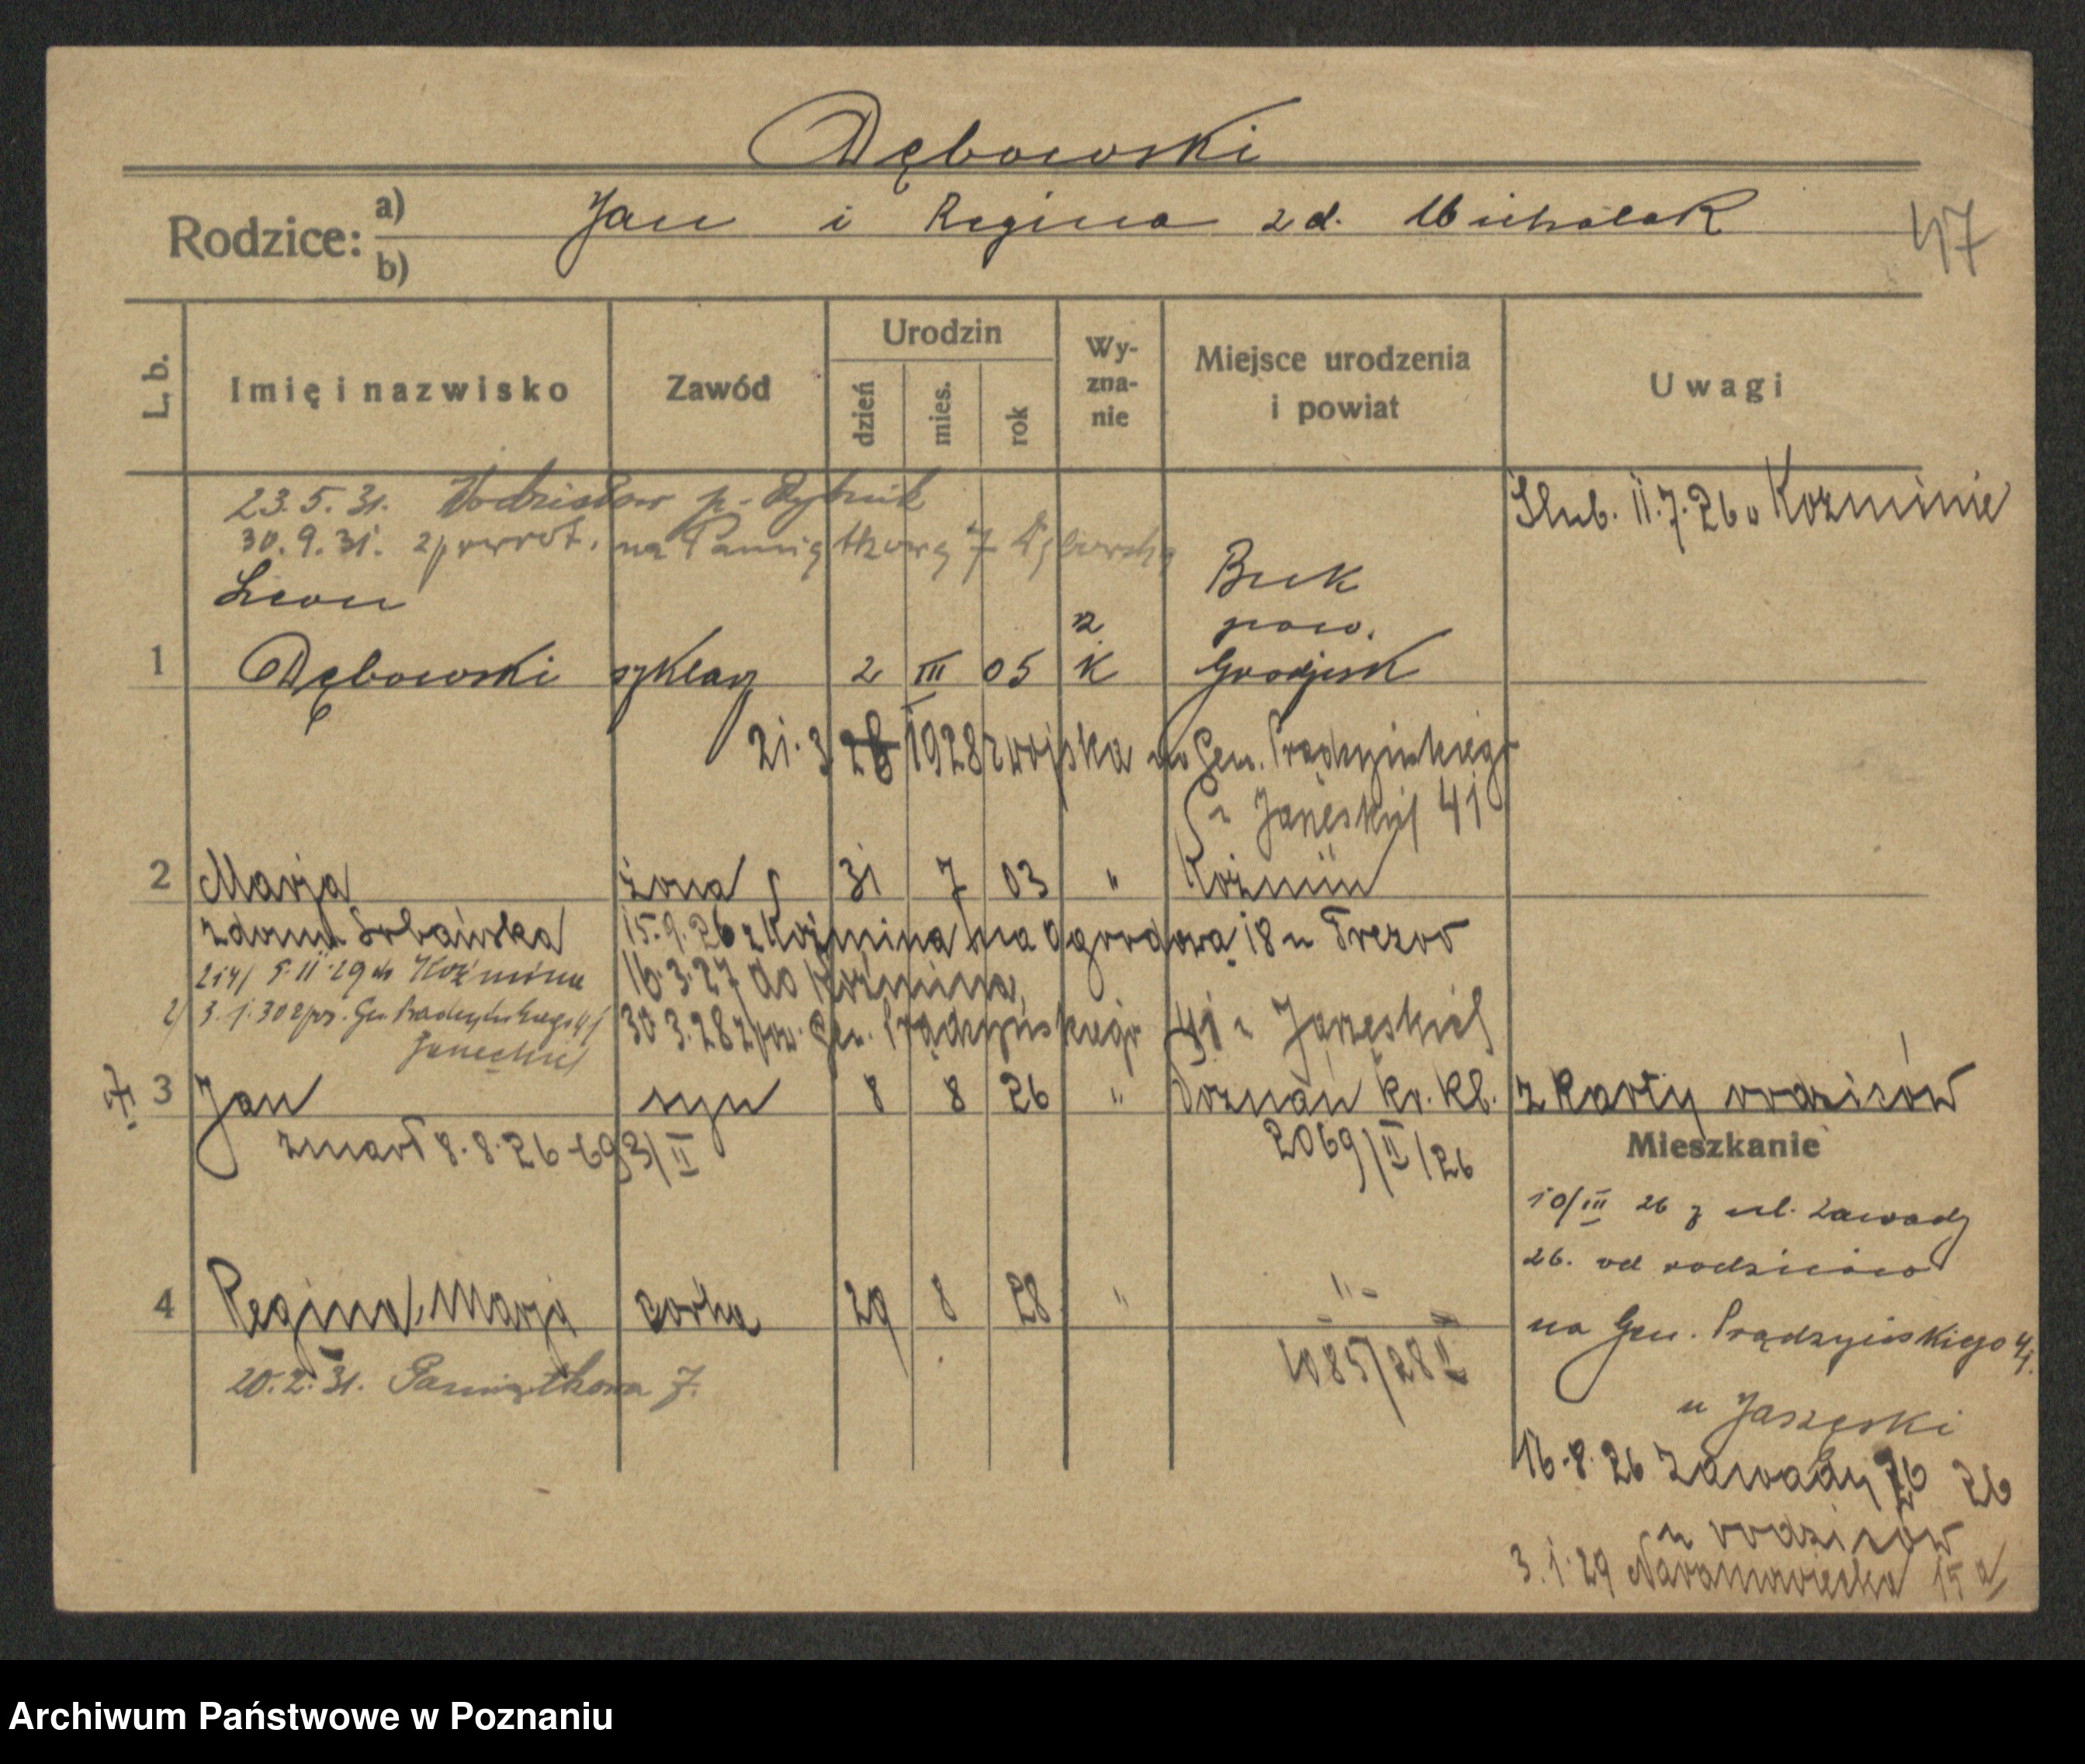 Dębowski
Rodzice: a) b) Jan i Regina zd. Michalak
47
L. b. Imię i nazwisko Zawód Urodzin dzień mies. rok Wy-zna-nie Miejsce urodzenia i powiat Uwagi
23.5.31. Wodzisław p. Rybnik
Ślub. 11.7.26 w Kozminie
30.9.31. zpowrot. na Pamiątkową 7
Leon Buk
pow.
1 Dębowski szklarz 2 III 05 rz k Grodzisk
21.3 28 1928 z wojska do Gen. Prądzyńskiego
41
2 Marja żona 31 7 03 " Koźmin
zdomu 15.9.26 z Koźmina na Ogrodową 18 u
5.11.29 do Koźmina 16.3.27 do Koźmina
3.1.30 zpr. Gen. Prądzyńskiego 41 30 3.28 zpow. Gen. Prądzyńskiego 41 u
3 Jan syn 8 8 26 " Poznań kr. kl. z karty rodziców
zmarł 8.8.26 693/II 2069/II/26
Mieszkanie
10/III 26 z ul. Zawady
26. od rodziców
4 Regina, Marja córka 29 8 28 " - " -
na Gen. Prądzyńskiego 41.
20.2.31. Pamiątkowa 7. 1085/28 II
u Jaszęski
16.8.26 Zawady 26 26
u rodziców
3.1.29 Naramowicka 15 a/
Archiwum Państwowe w Poznaniu